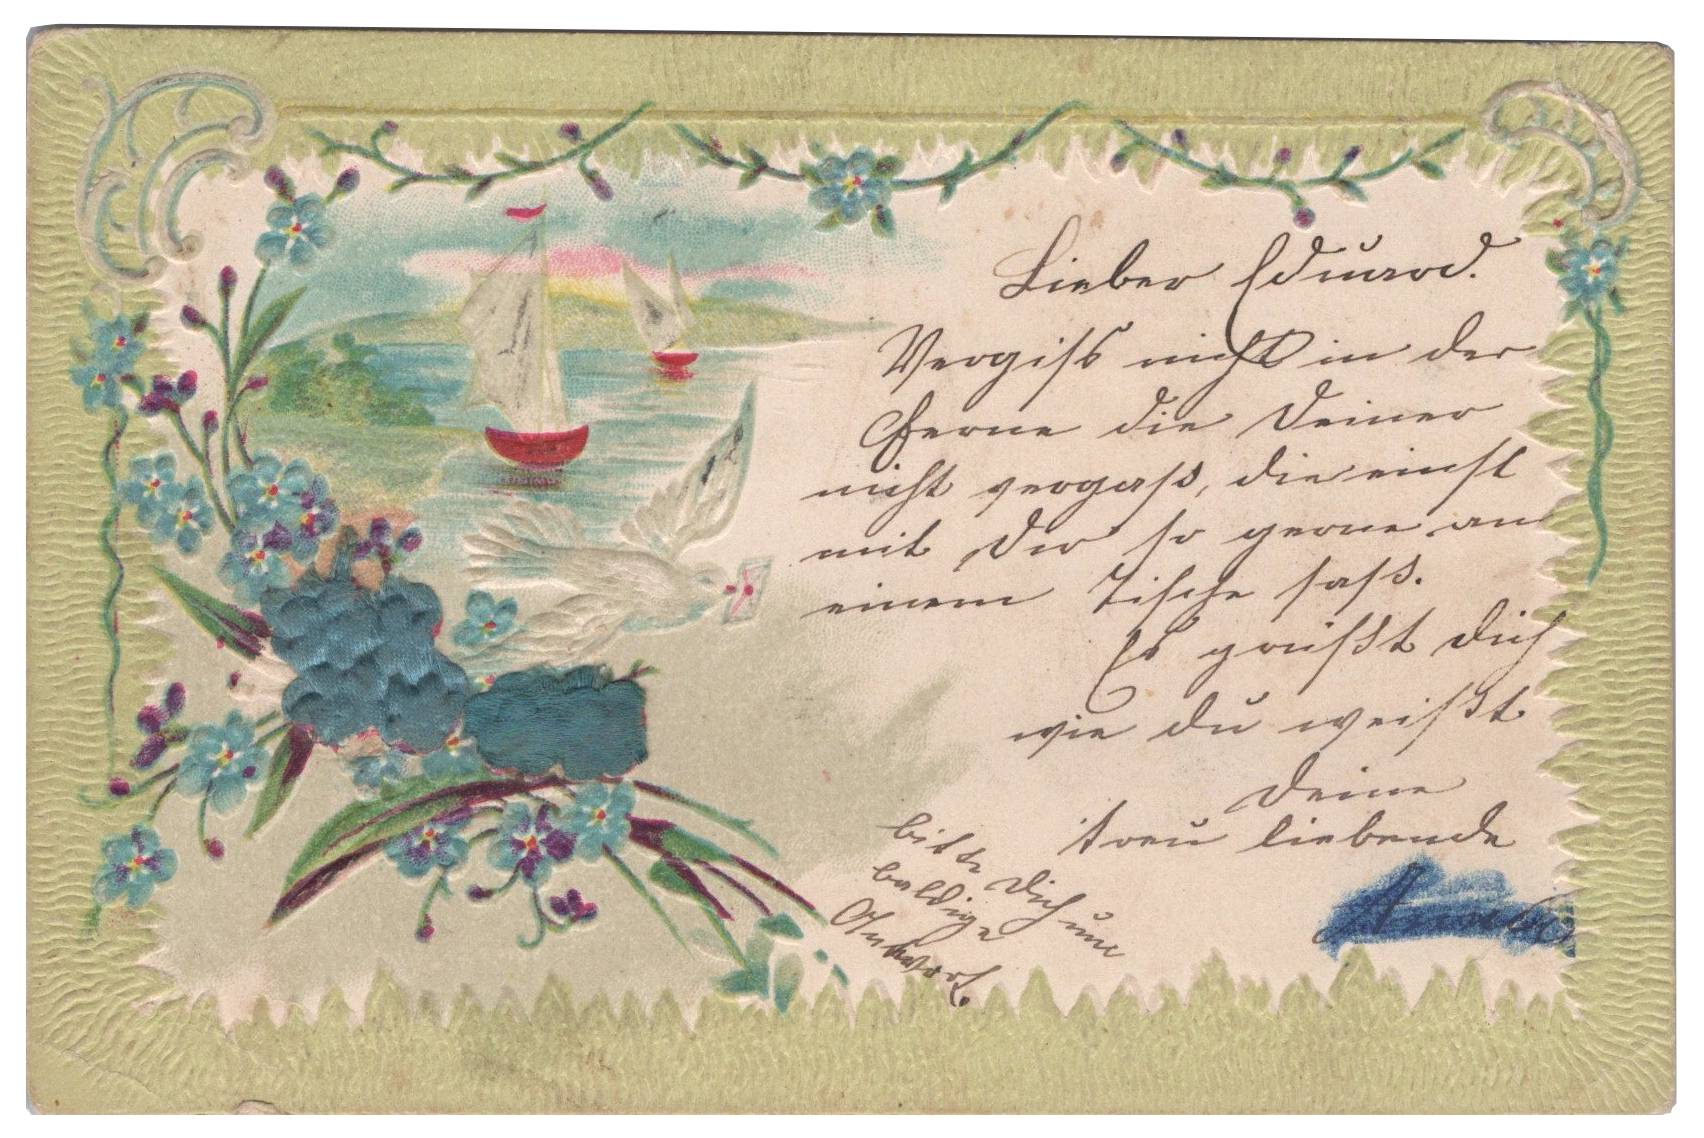 Lieber Eduard.
Vergiß nicht in der
Ferne die Deiner
nicht vergaß, die einst
mit Dir so gerne an
einem Tische saß.
Es grüßt Dich
wie du weißt
Deine
treu liebende
bitte Dich um
baldige
Antwort.